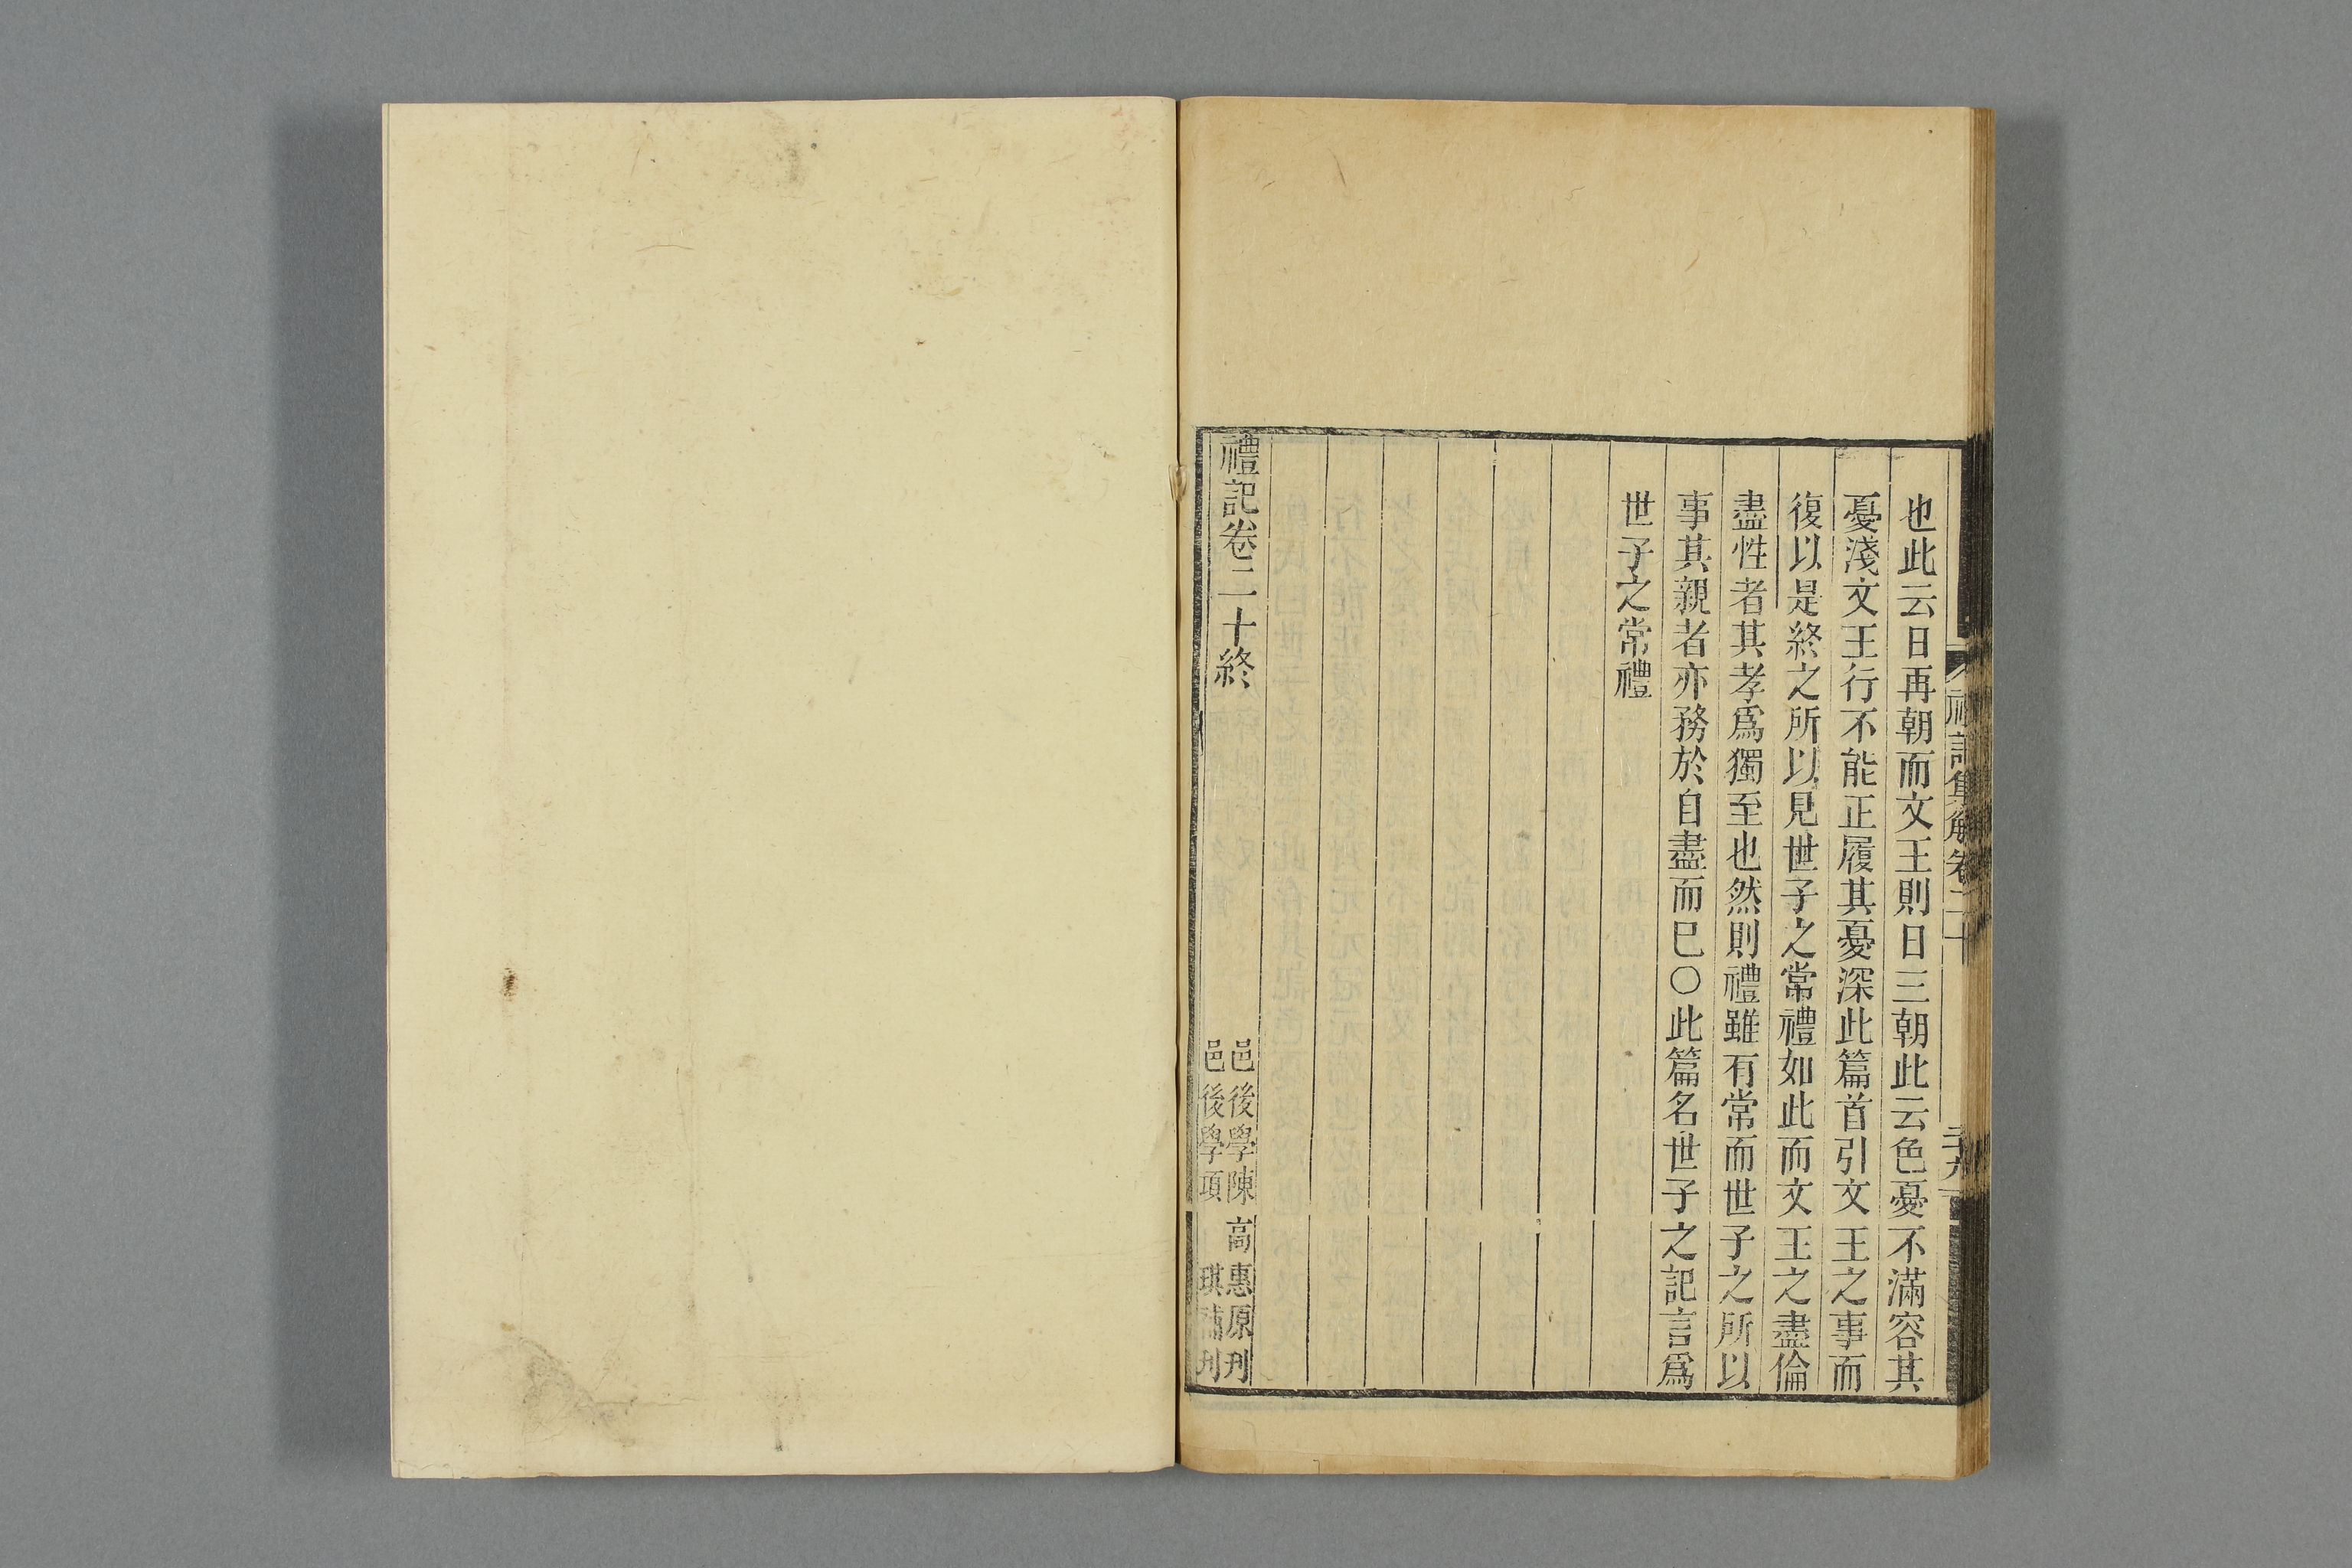 禮記集解卷二十
也此云日再朝而文王則日三朝此云色憂不滿容其
憂淺文王行不能正履其憂深此篇首引文王之事而
復以是終之所以見世子之常禮如此而文王之盡倫
盡性者其孝爲獨至也然則禮雖有常而世子之所以
事其親者亦務於自盡而巳○此篇名世子之記言爲
世子之常禮
禮記卷二十終
邑後學陳高惠原刊
邑後學項琪補刊